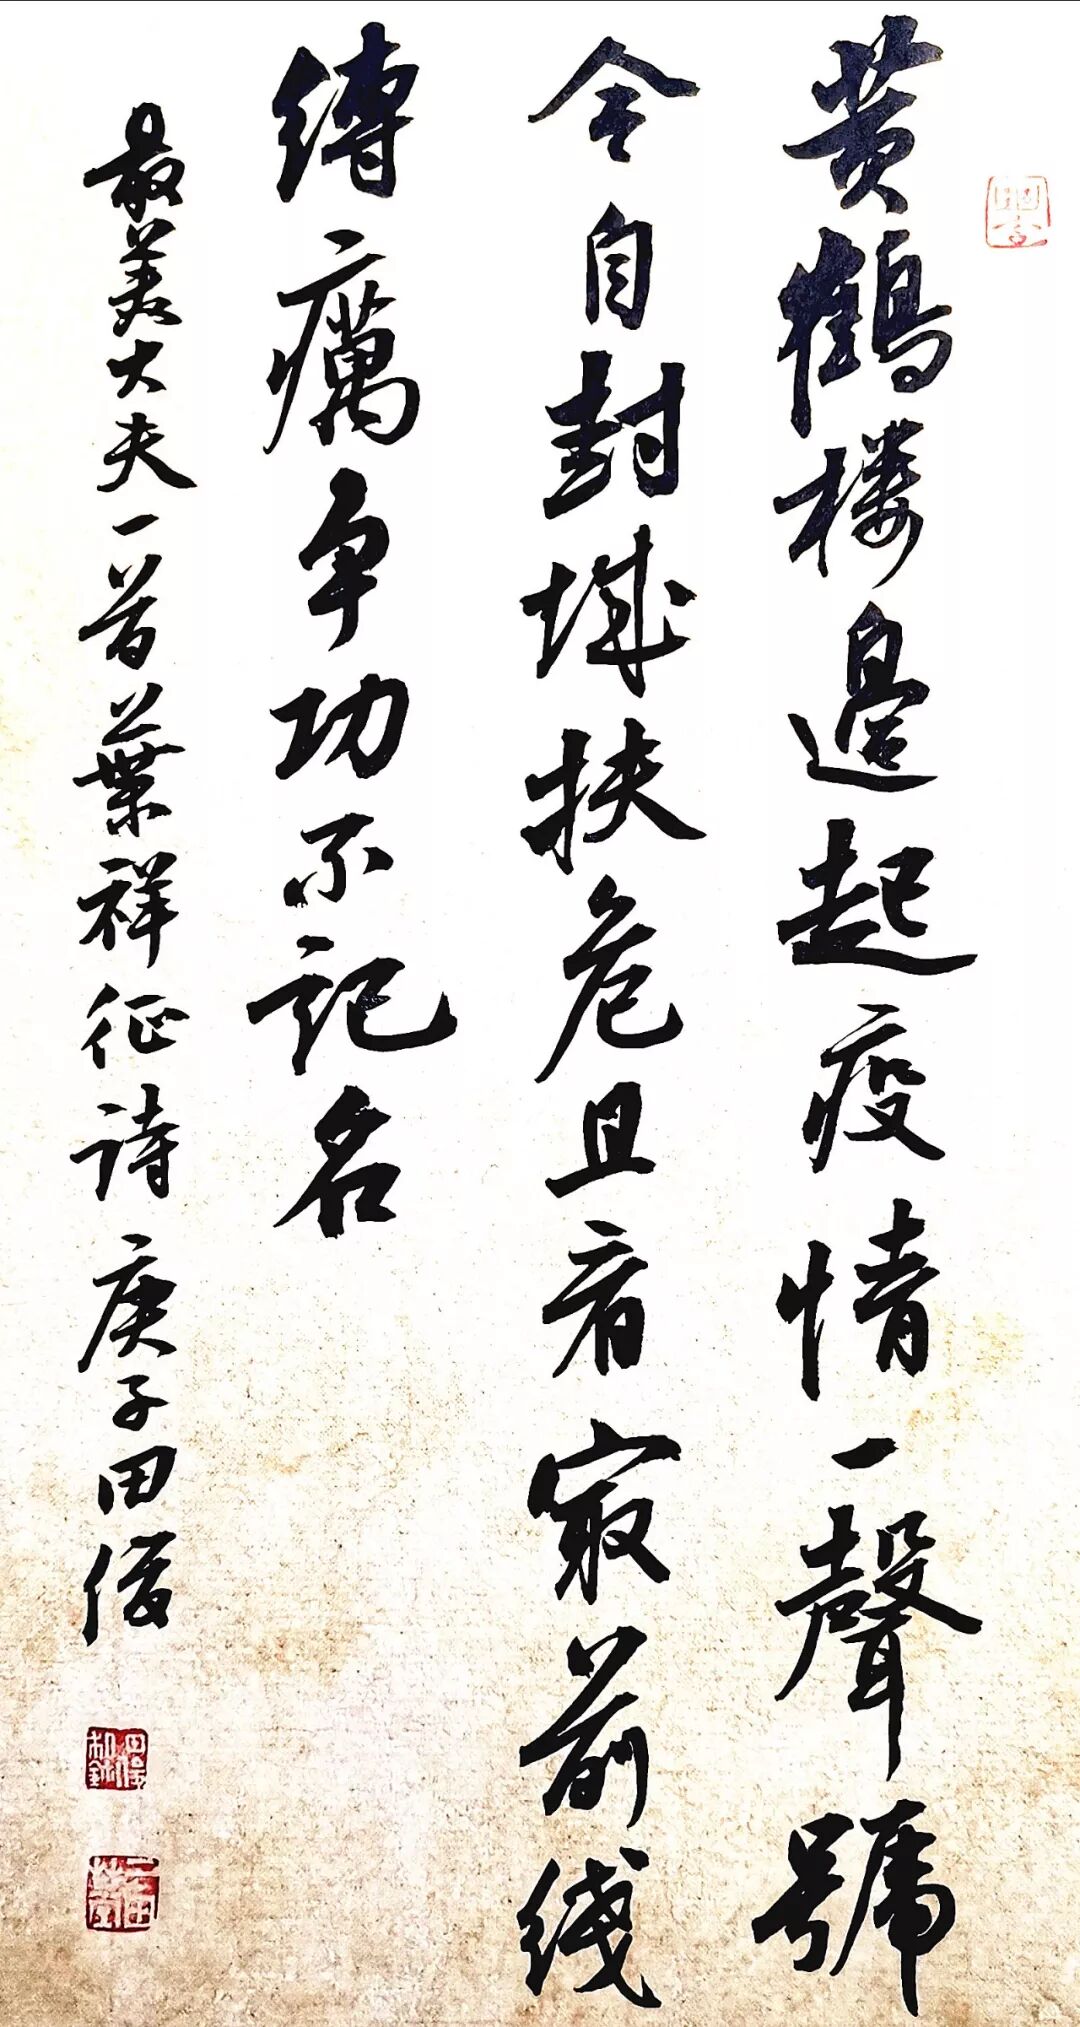 黄鶴楼邊起疫情一聲號
令自封城扶危且看最前线
縛癘争功不記名
最美大夫一首葉祥征诗 庚子田俊